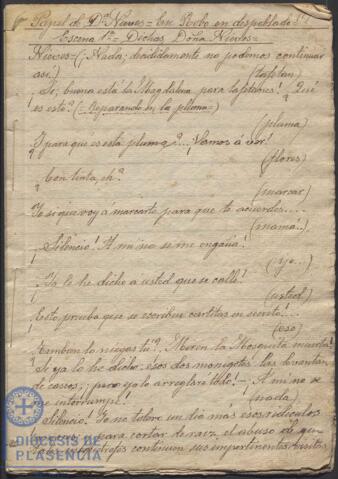 Papel de Dª Nieves = en despoblado
Escena 1ª = Dichas Doña Nieves =
Nieves = (¡Nada, decididamente no podemos continuar
así.)
(tafetan)
¡Sí, buena está la Magdalena para tafetanes! ¿Qué
es esto? (= Reparando en la pluma =)
(pluma)
¿Y para qué es está pluma?... ¡Vamos á ver!
(flores)
¿Con tinta, eh?
(marcar)
Yo si que voy á marcarte para que te acuerdes....
(mamá..)
¡Silencio! A mi no se me engaña!
(yo...)
¡Ya le he dicho a usted que se calle!
(usted)
Esto prueba que se escriben cartitas en secreto!...
(eso)
¿Tambien lo niegas tú?. Miren la Mosquita muerta!
Si ya lo he dicho; esos dos las levantan
de cascos; ¡pero ya lo arreglaré todo! = ¡A mi no se
me interrumpe!
(nada)
¡Silencio! Yo no tolero un dia más esos ridículos
para cortar de raiz, el abuso de que
continuen sus impertinentes visitas
DIÓCESIS DE
PLASENCIA